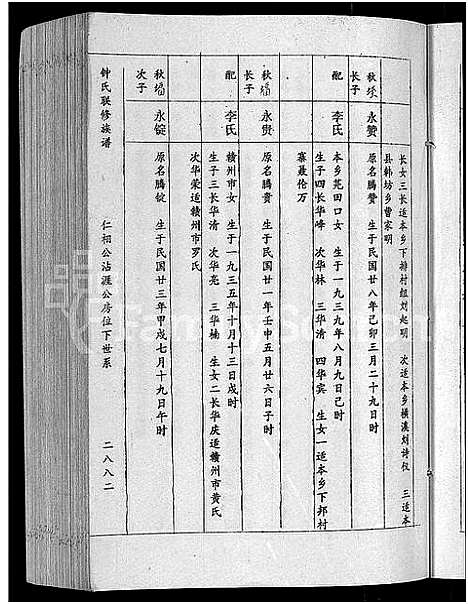 长女三长适本乡下排村组刘起明 次适本乡横溪刘诗仪 三适本
县韩坊乡曹家明
秋埰长子 永赞 原名腾赞 生于民国廿八年己卯三月二十九日时
配 李氏 本乡苑田口女 生于一九三九年八月九日己时
生子四长华峰 次华林 三华清 四华宾 生女一适本乡下邦村
寨聂伦万
秋壖长子 永贵 原名腾贵 生于民国廿一年壬申五月廿六日子时
配 李氏 赣州市女 生于一九三五年十月十三日戌时
生子三长华清 次华亮 三华楠 生女二长华庆适赣州市黄氏
次华荣适赣州市罗氏
秋壖次子 永锭 原名腾锭 生于民国廿三年甲戌七月十九日午时
钟氏联修族谱 仁相公沾涯公房位下世系 二八八二